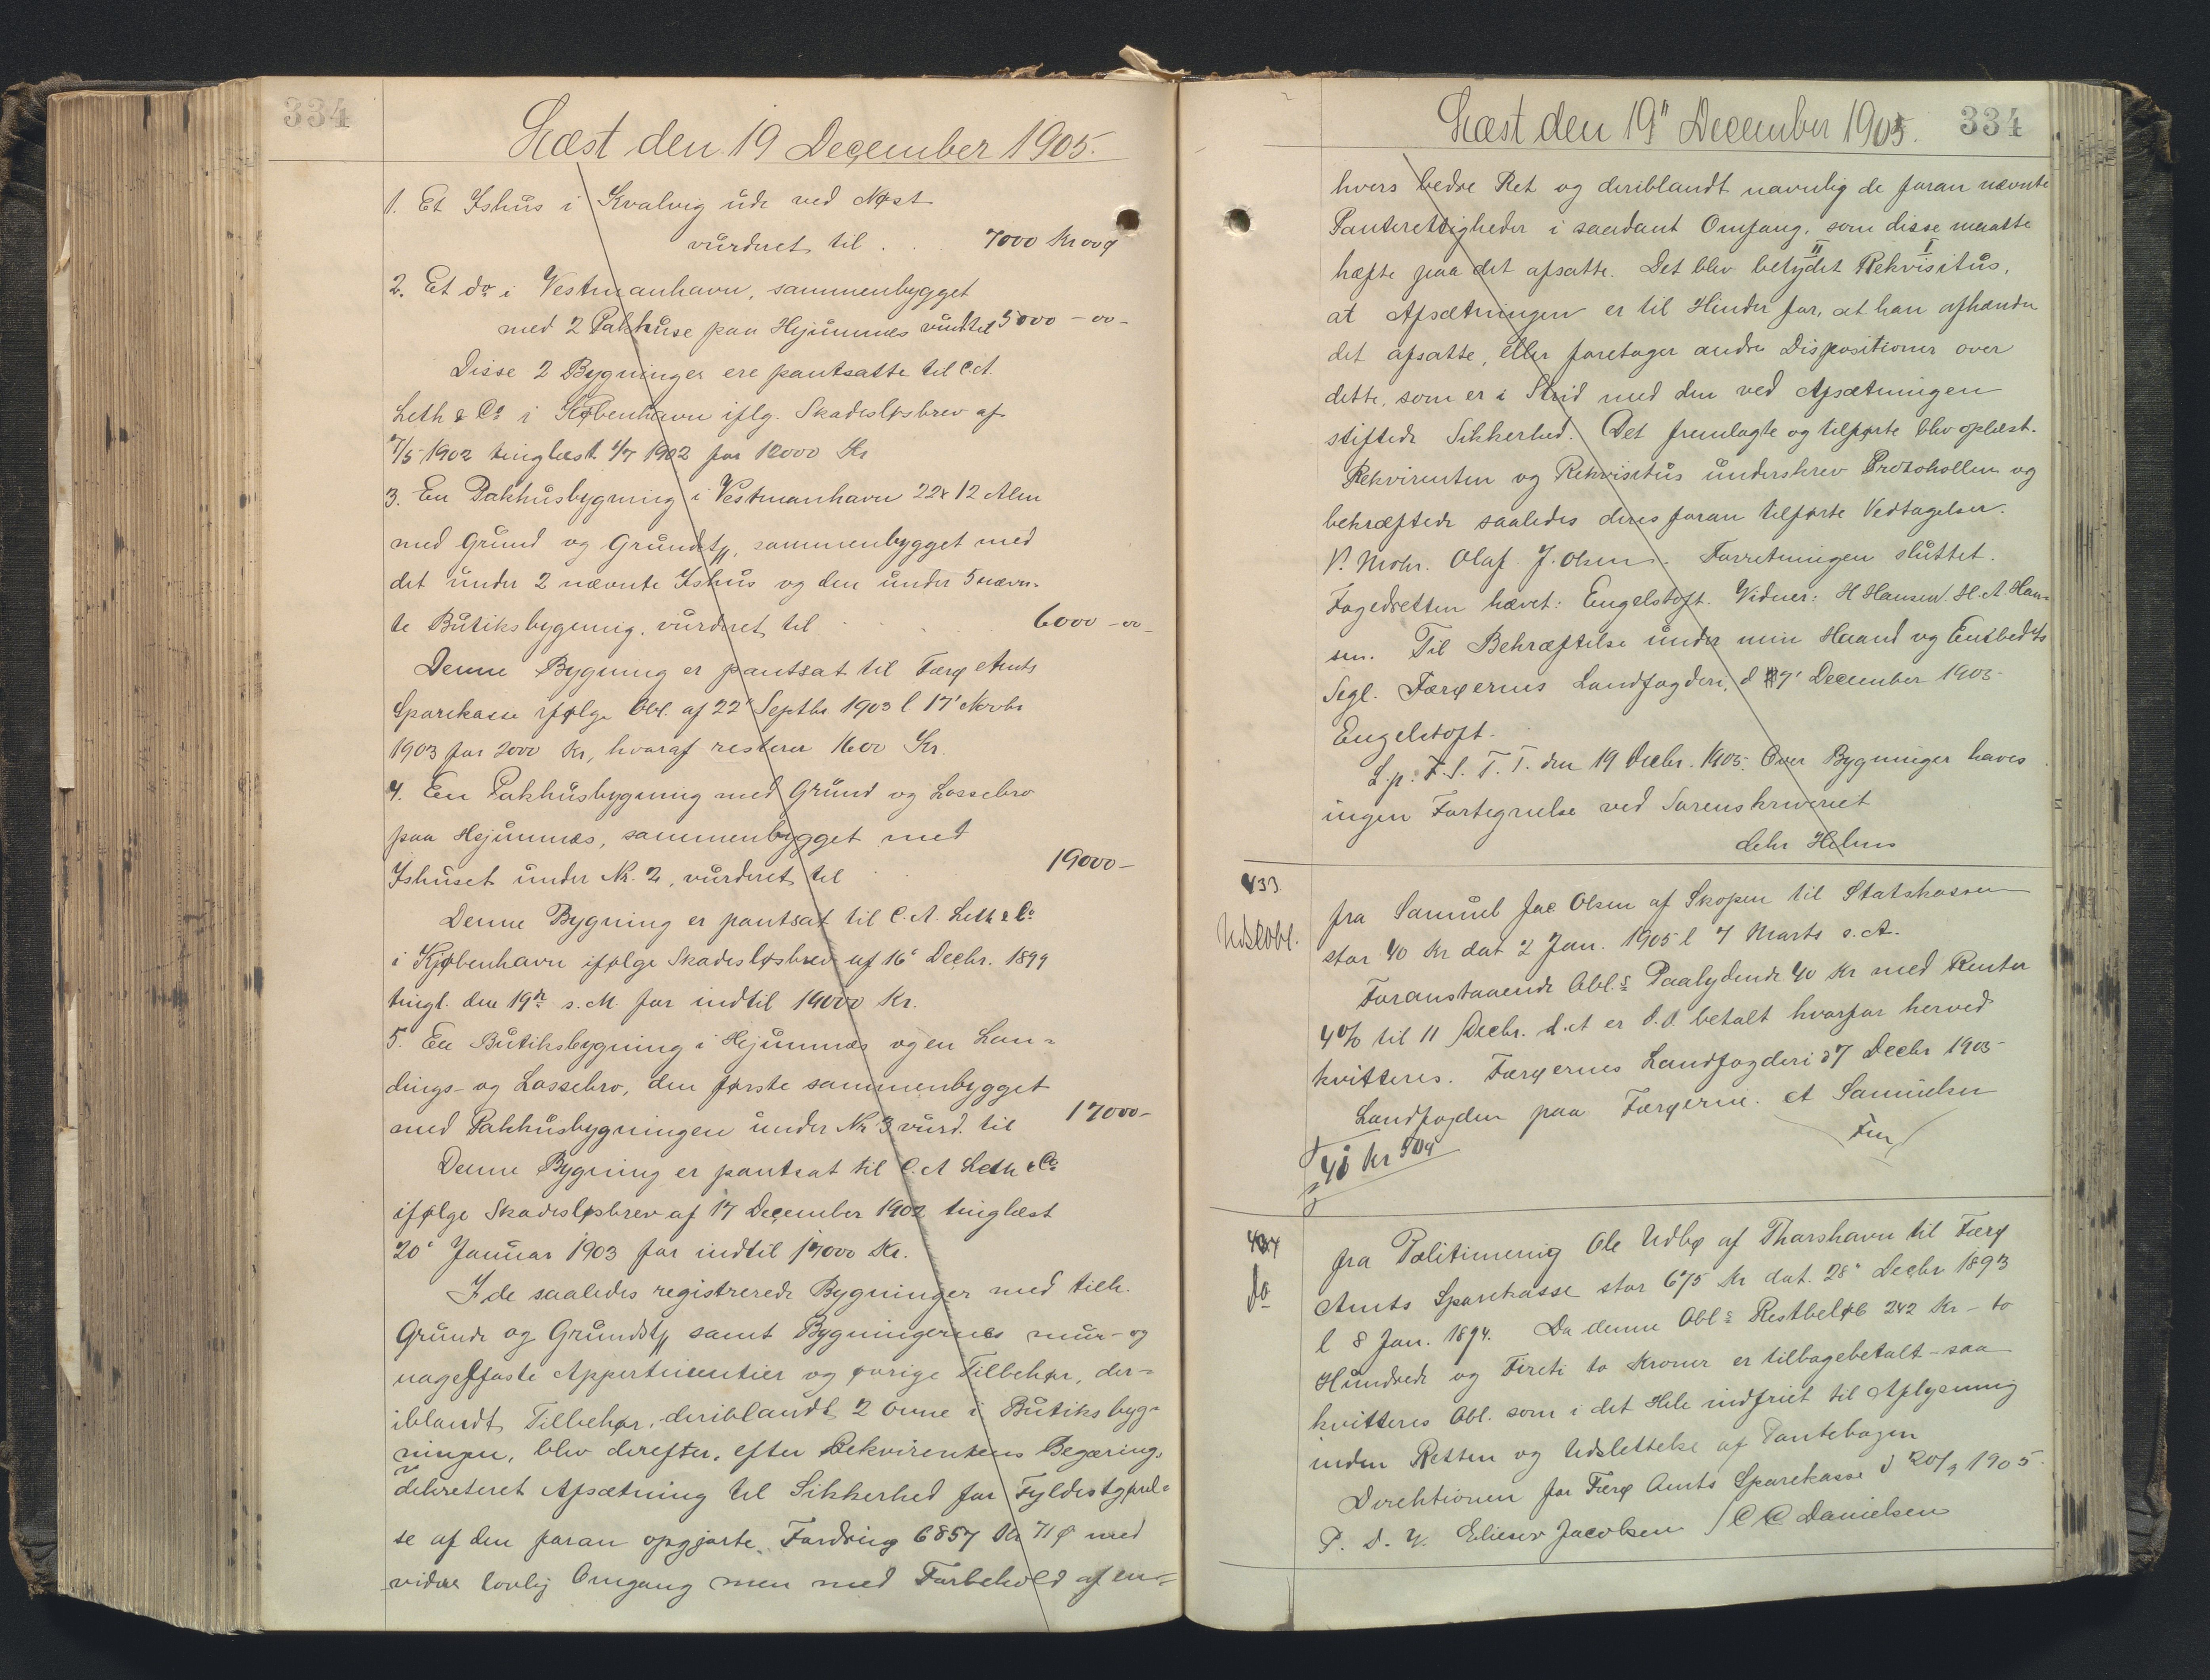 334
Læst den 19 December 1905.
1. Et Ishus i Kvalvig ude ved Nøst
vurderet til . . 7000 Kr 00 Ø
2. Et do i Vestmanhavn, sammenbygget
med 2 Pakhuse paa Hejumnæs vurd til 5000 - 00 -
Disse 2 Bygninger ere pantsatte til C. A.
Leth & Co i København iflg. Skadesløsbrev af
7/5 1902 tinglæst 4/7 1902 for 12000 Kr
3. En Pakhusbygning i Vestmanhavn 22 x 12 Alen
med Grund og Grundst, sammenbygget med
det under 2 nævnte Ishus og den under 5 nævn-
te Butiksbygning, vurderet til . . 6000 - 00 -
Denne Bygning er pantsat til Færø Amts
Sparekasse ifølge Obl. af 22' Septbr 1903 l 17' Novbr
1903 for 2000 Kr, hvoraf resterer 1600 Kr.
4. En Pakhusbygning med Grund og Lossebro
paa Hejumnæs, sammenbygget med
Ishuset under Nr. 2, vurderet til 19000 -
Denne Bygning er pantsat til C. A. Leth & Co
i Kjøbenhavn ifølge Skadesløsbrev af 16' Decbr. 1899
tingl. den 19de s. M. for indtil 19000 Kr.
5. En Butiksbygning i Hejumnæs og en Lan-
dings- og Lossebro, den første sammenbygget
med Pakhusbygningen under Nr 3 vurd. til 17000 -
Denne Bygning er pantsat til C. A Leth & Co
ifølge Skadesløsbrev af 17 December 1902 tinglæst
20' Januar 1903 for indtil 17000 Kr.
I de saaledes registrerede Bygninger med tilh.
Grunde og Grundst samt Bygningernes mur- og
nagelfaste Appertinentier og øvrige Tilbehør, der-
iblandt Tilbehør, deriblandt 2 Ovne i Butiksbyg-
ningen, blev derefter, efter Rekvirentens Begæring,
dekreteret Afsætning til Sikkerhed for Fyldestgørel-
se af den foran opgjorte Fordring 6857 Kr 71 Ø med
videre lovlig Omgang men med Forbehold af en-
Læst den 19" December 1905. 334
hvers bedre Ret og deriblandt navnlig de foran nævnte
Panterettigheder i saadant Omfang, som disse maatte
hæfte paa det afsatte. Det blev betydet II Rekvisitus, I
at Afsætningen er til Hinder for, at han afhænder
det afsatte, eller foretager andre Dispositioner over
dette, som er i Strid med den ved Afsætningen
stiftede Sikkerhed. Det fremlagte og tilførte blev oplæst.
Rekvirenten og Rekvisitus underskrev Protokollen og
bekræftede saaledes deres foran tilførte Vedtagelser.
P. Mohr. Olaf J. Olsen. Forretningen sluttet.
Fogedretten hævet: Engelstoft. Vidner: H Hansen. H. A Han-
sen. Til Bekræftelse under min Haand og Embeds
Segl. Færøernes Landfogderi, d 7' December 1905
Engelstoft.
L. p. F. S. T. T. den 19 Decbr. 1905. Over Bygninger haves
ingen Fortegnelse ved Sorenskriveriet
dehr Helms
433
Udslobl.
fra Samuel Jac. Olsen af Skopen til Statskassen
stor 40 Kr dat 2 Jan. 1905 l 7 Marts s. A.
Foranstaaende Obl.s Paalydende 40 Kr med Renter
4% til 11 Decbr. d. A er d. d. betalt hvorfor herved
kvitteres. Færøernes Landfogderi d 7 Decbr 1905
Landfogden paa Færøerne. A Samuelsen
Fm
40 Kr
434
do
fra Politimenig Ole Udbø af Thorshavn til Færø
Amts Sparekasse stor 675 Kr dat. 28' Decbr 1893
l 8 Jan. 1894. Da denne Obl.s Restbeløb 242 Kr - to
Hundrede og Fireti to Kroner er tilbagebetalt - saa
kvitteres Obl. som i det Hele indfriet til Aflysning
inden Retten og Udslettelse af Pantebogen
Direktionen for Færø Amts Sparekasse d 20/9 1905.
P. D. V. Elieser Jacobsen / C C Danielsen